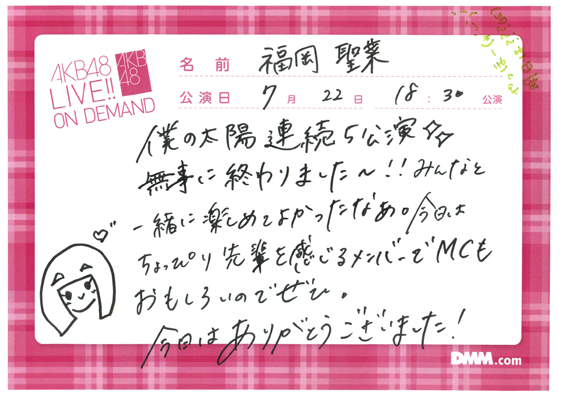 AKB48
LIVE!!
ON DEMAND
AKB
48
名前 福岡 聖菜
公演日 7月 22日 18:30 公演
僕の太陽 連続5公演
無事に終わりました〜!!みんなと
一緒に楽しめてよかったなあ。今日は
ちょっぴり先輩を感じるメンバーでMCも
おもしろいのでぜひ。
今日はありがとうございました!
DMM.com